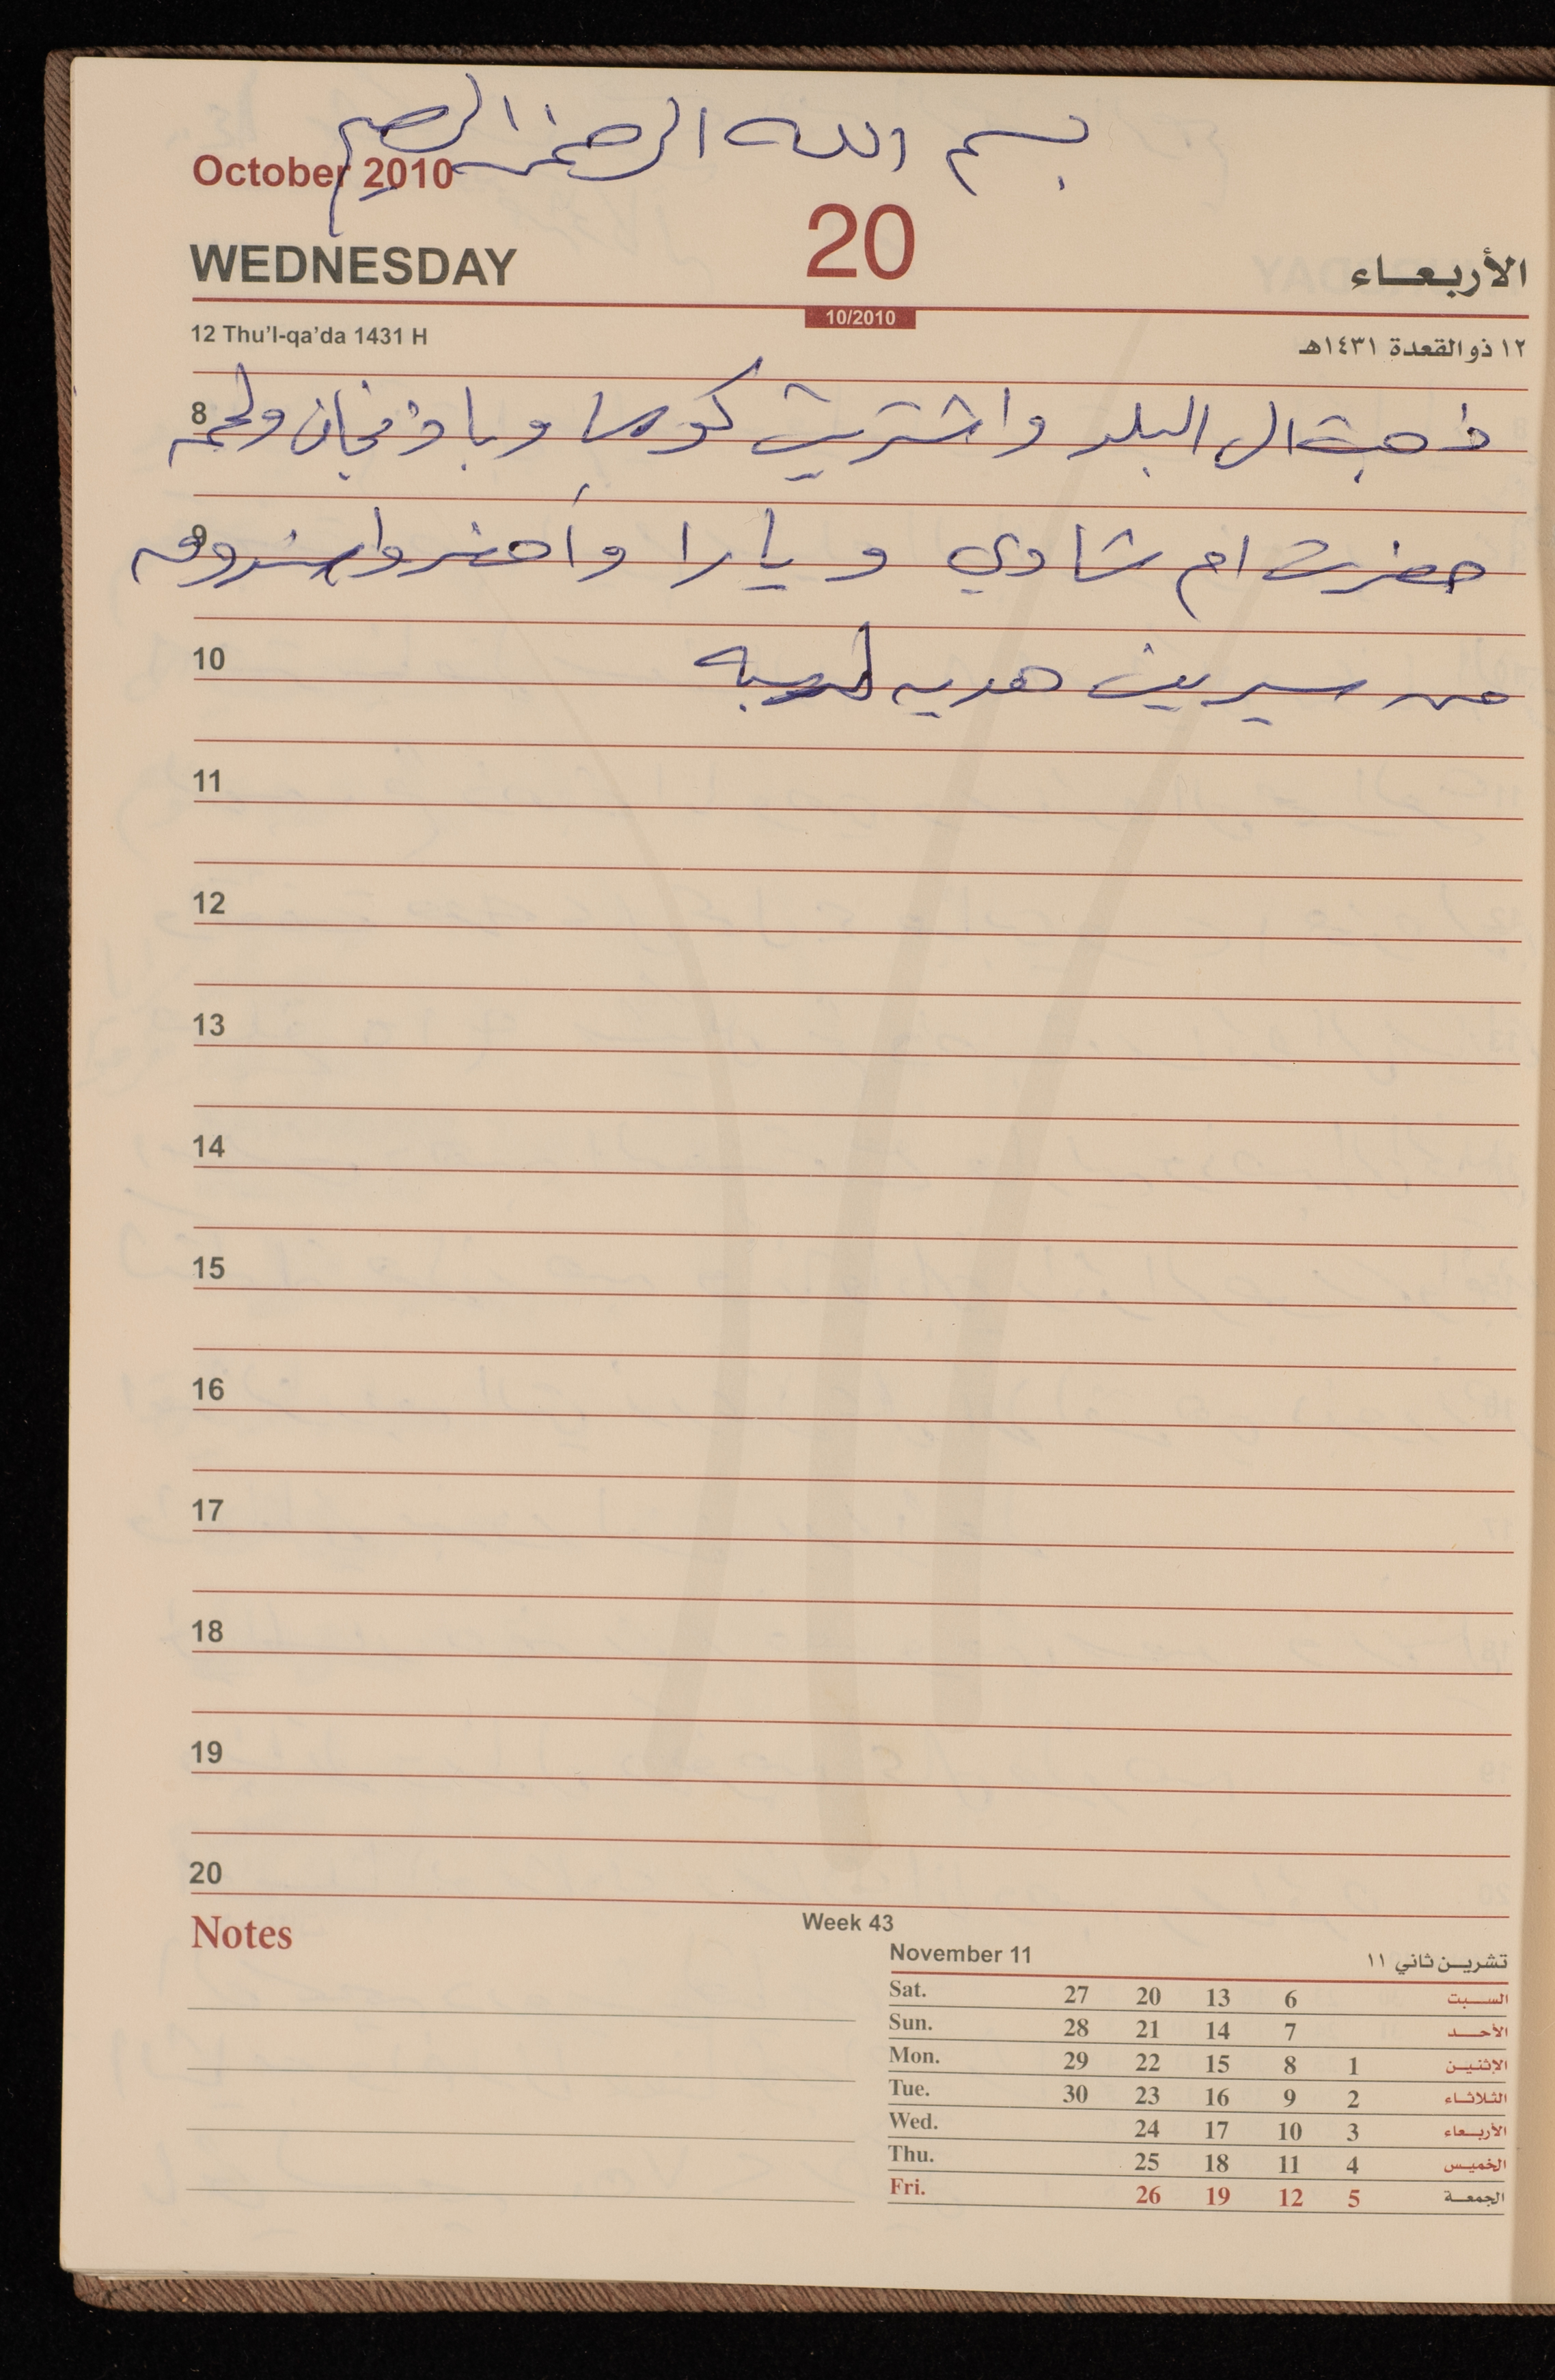 بسم الله الرحمن الرحيم
October 2010
WEDNESDAY 20 الأربعاء
10/2010
12 Thu'l-qa'da 1431 H ١٢ ذو القعدة ١٤٣١هـ
8 ذهبت الى البلد واشتريت كوسا وباذنجان ولحمه
9 حضرت ام شادي و يارا وأحضروا
10 من سيرين هديه
11
12
13
14
15
16
17
18
19
20
Notes
Week 43
November 11 تشرين ثاني ١١
Sat. 27 20 13 6 السبت
Sun. 28 21 14 7 الأحد
Mon. 29 22 15 8 1 الإثنين
Tue. 30 23 16 9 2 الثلاثاء
Wed. 24 17 10 3 الأربعاء
Thu. 25 18 11 4 الخميس
Fri. 26 19 12 5 الجمعة